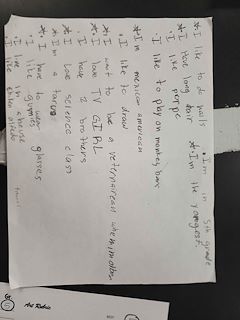 •I'm in 5th grade
*I like to do nails *I'm the youngest.
*I have long hair
•I like
•I like to play on monkey bars
*Im mexican american
•I like to draw
*I want to be a veternairean when im older
*I love TV GIRL
•I have 2 brothers
*I love science class
*Im a tarus
*I have to wear glasses.
•I like
•I live in a house
•I like
Art Rubric